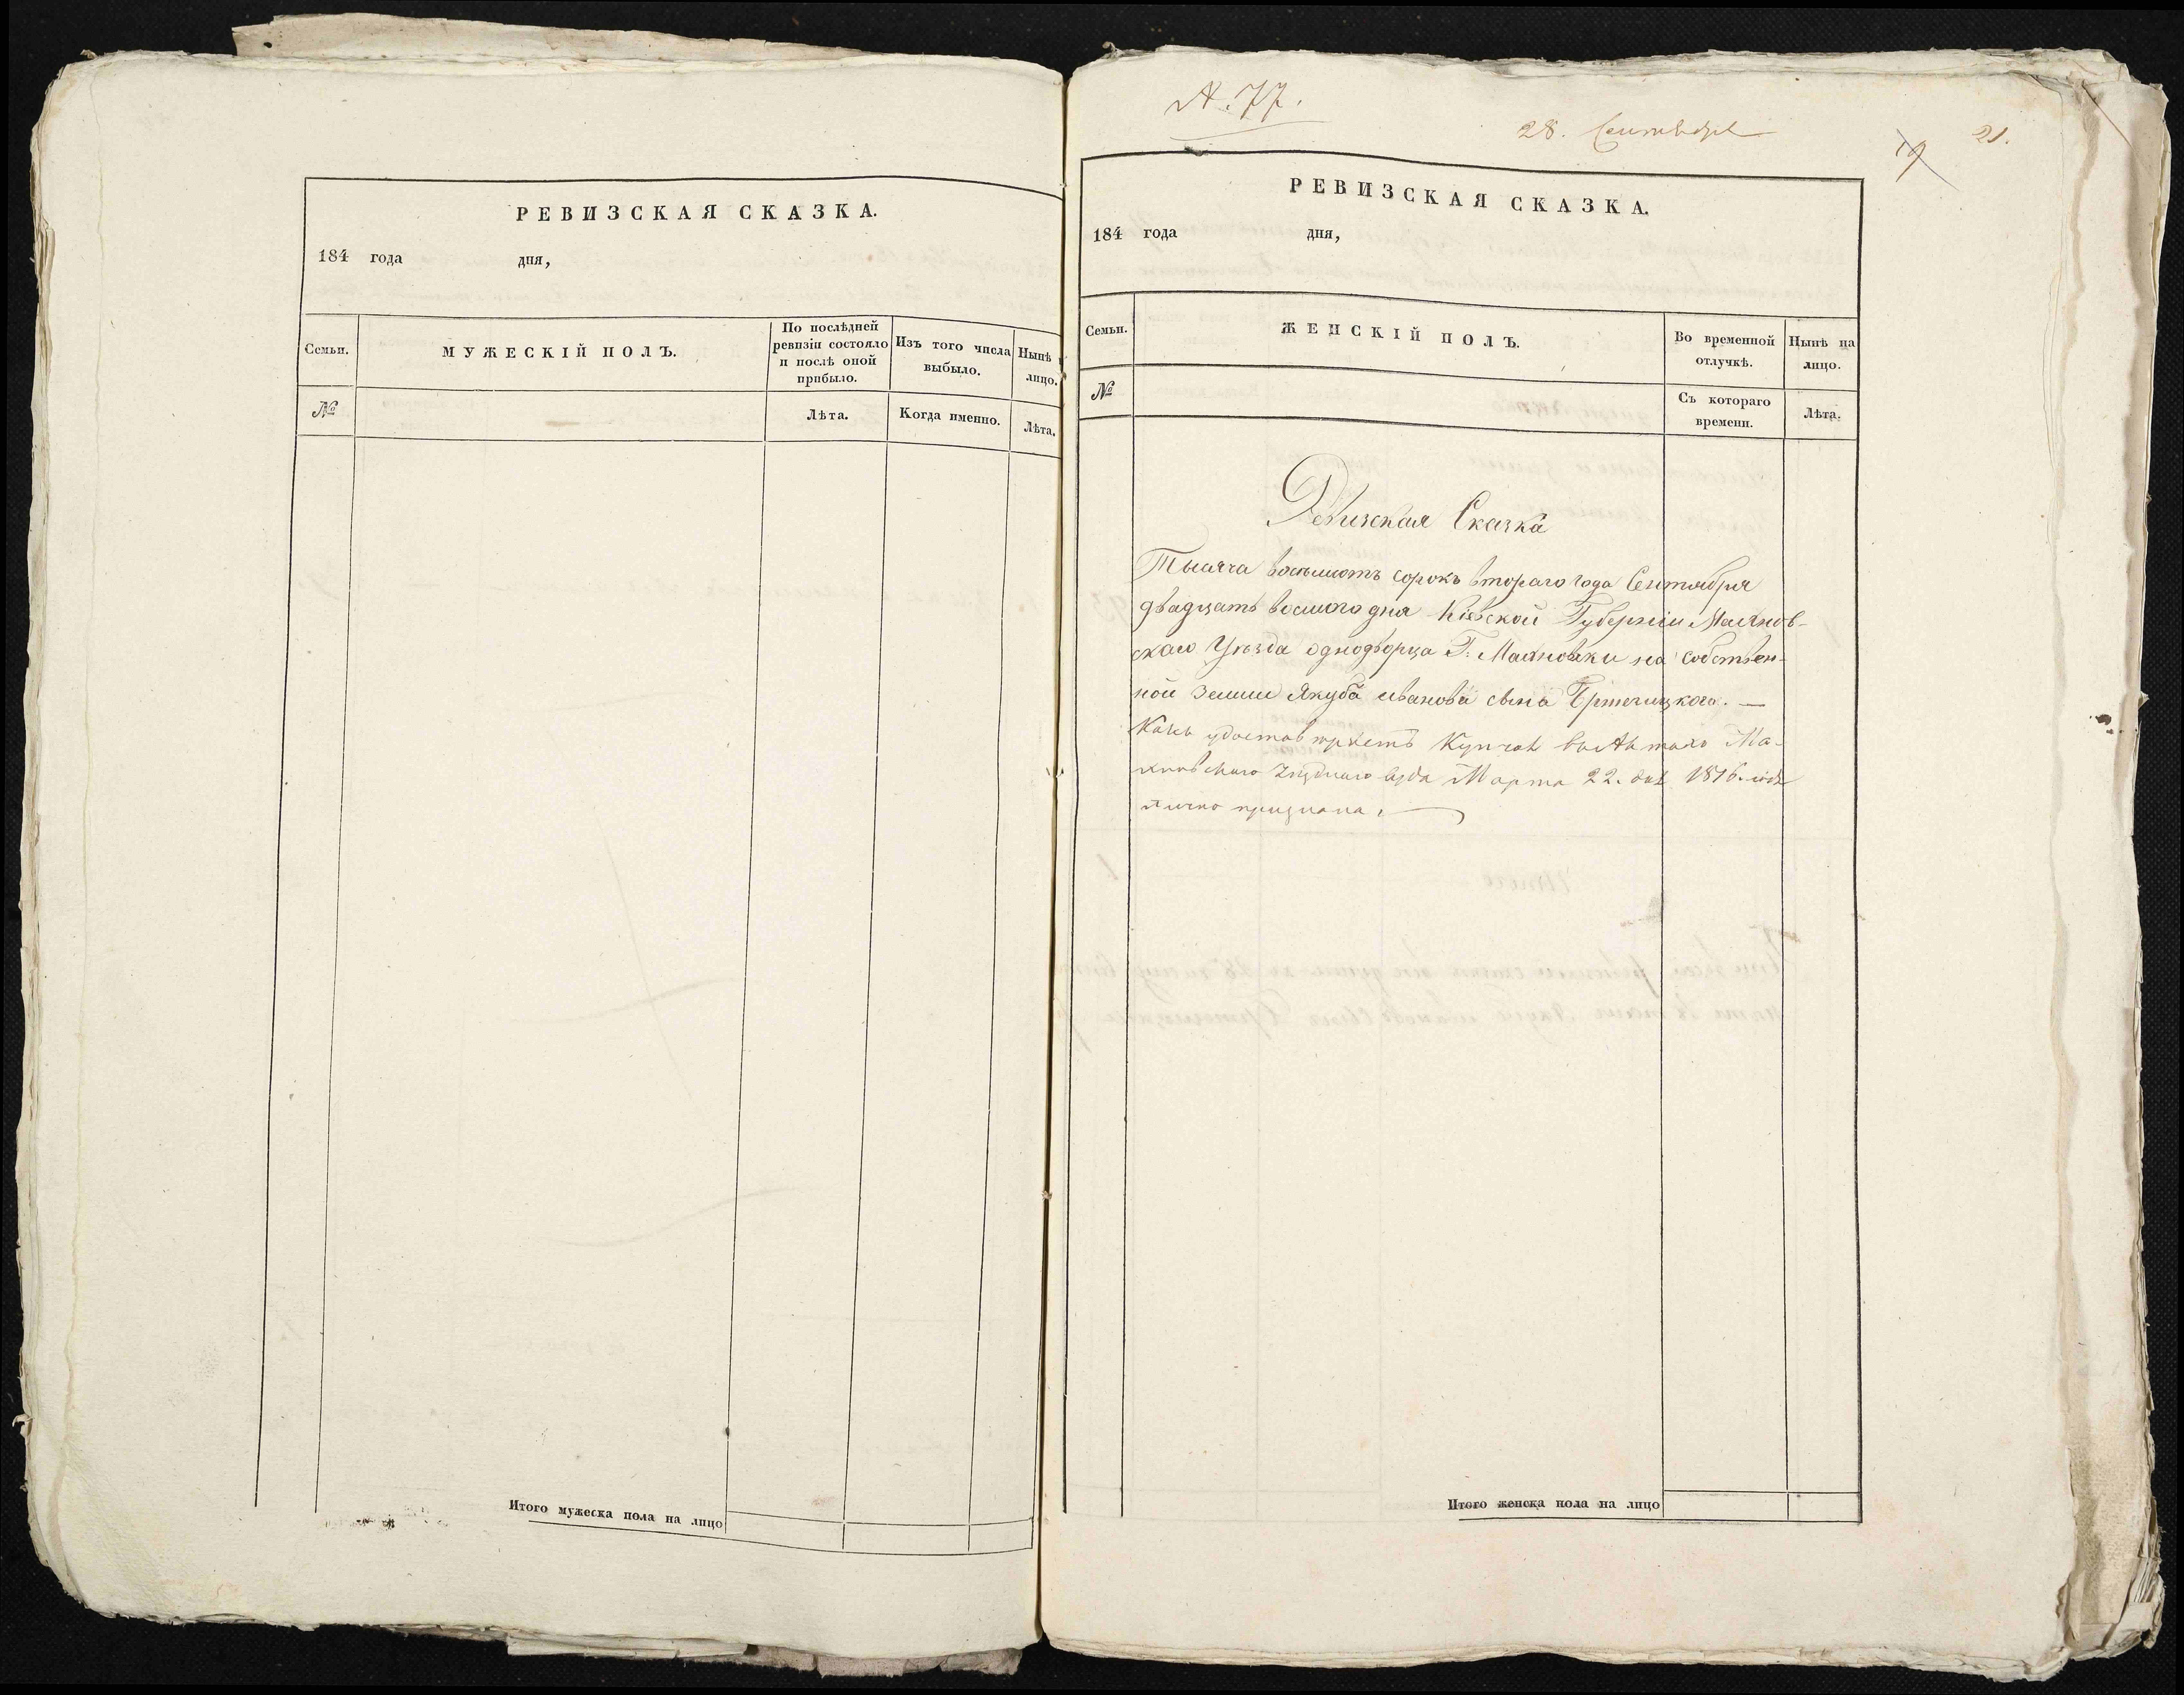 РЕВИЗСКАЯ СКАЗКА.
184 года дня,
Семьи.
МУЖЕСКІЙ ПОЛЪ.
По послѣдней
ревизіи состояло
и послѣ оной
прибыло.
Изъ того числа
выбыло.
Нынѣ
лицо.
№
Лѣта.
Когда именно.
Лѣта.
Итого мужеска пола на лицо
№. 77.
28. Сентября
19
21.
РЕВИЗСКАЯ СКАЗКА.
184 года дня,
Семьи.
ЖЕНСКІЙ ПОЛЪ.
Во временной
отлучкѣ.
Нынѣ на
лицо.
№
Съ котораго
времени.
Лѣта.
Ревизская Сказка
Тысяча восемсотъ сорокъ втораго года Сентября
двадцать восмого дня Кіевской Губерніи Махнов-
скаго Уѣзда однодворца Г. Махновки на собствен-
ной земли Якуба иванова сына
Какъ Купчая Ма-
хновскаго суда Марта 22. дня 1816. года
лично признана.
Итого женска пола на лицо